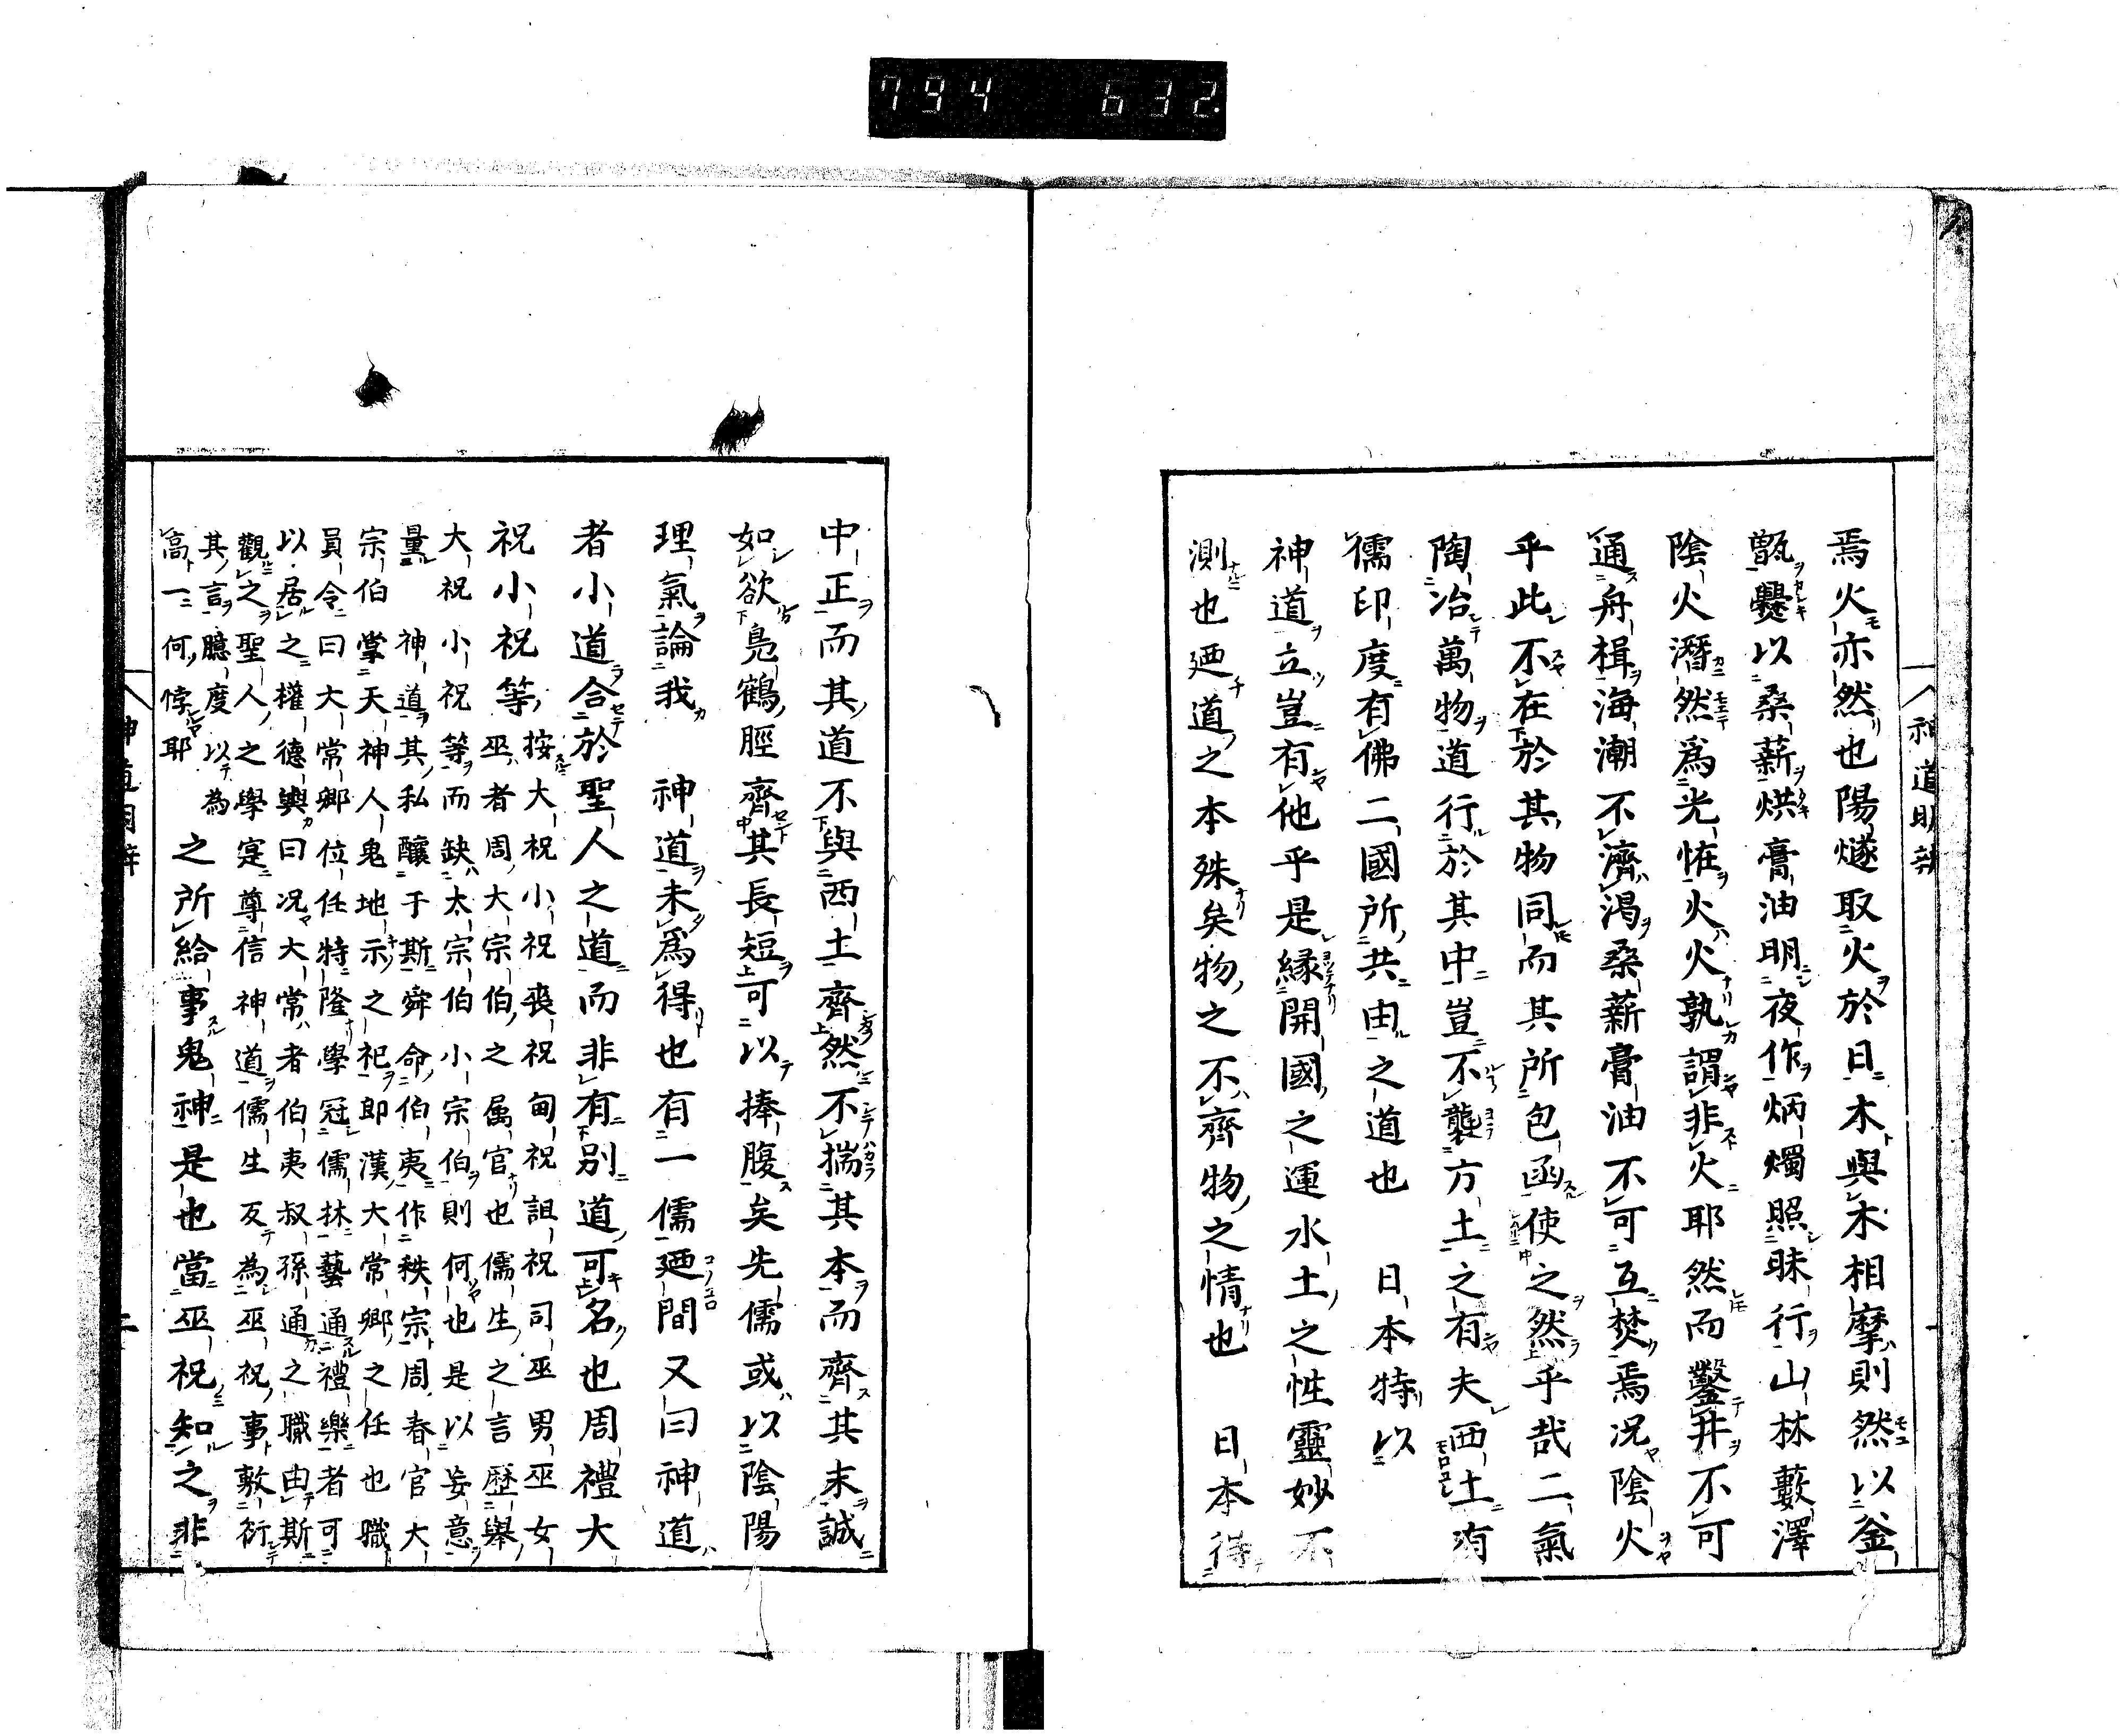 794 632
神道明辨
焉火亦然也陽燧取火於日木與木相摩則然以釜
甑爨以桑薪烘膏油明夜作炳燭照昧行山林藪澤
陰火潛然爲光恠火火孰謂非火耶然而鑿井不可
通舟楫海潮不濟渴桑薪膏油不可互焚焉況陰火
乎此不在於其物同而其所包函使之然乎哉二氣
陶冶萬物道行於其中豈不襲方土之有夫西土有
儒印度有佛二國所共由之道也　日本特以
神道立豈有他乎是緣開國之運水土之性靈妙不
測也廼道之本殊矣物之不齊物之情也　日本得
中正而其道不與西土齊然不揣其本而齊其末誠
如欲鳧鶴脛齊其長短可以捧腹矣先儒或以陰陽
理氣論我　神道未爲得也有一儒廼間又曰神道
者小道合於聖人之道而非有別道可名也周禮大
祝小祝等
按大祝小祝喪祝甸祝詛祝司巫男巫女
巫者周大宗伯之属官也儒生之言歷舉
大祝小祝等而缺太宗伯小宗伯則何也是以妄意
量　神道其私釀于斯舜命伯夷作秩宗周春官大
宗伯掌天神人鬼地示之祀即漢大常卿之任也職
員令曰大常卿位任特隆學冠儒林藝通禮樂者可
以居之權德輿曰況大常者伯夷叔孫通之職由斯
觀之聖人之學寔尊信神道儒生反為巫祝事敷衍
其言臆度以為
高一何悖耶
之所給事鬼神是也當巫祝知之非
神道明辨
二